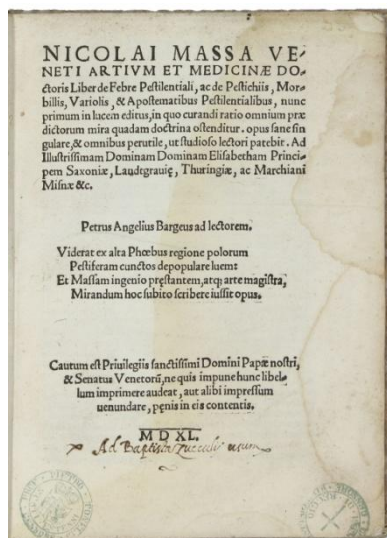 NICOLAI MASSA VE-
NETI ARTIVM ET MEDICINÆ DO-
ctoris Liber de Febre Pestilentiali, ac de Pestichiis, Mor-
billis, Variolis, & Apostematibus Pestilentialibus, nunc
primum in lucem editus, in quo curandi ratio omnium præ
dictorum mira quadam doctrina ostenditur. opus sane sin
gulare, & omnibus perutile, ut studioso lectori patebit. Ad
Illustrissimam Dominam Dominam Elisabetham Princi-
pem Saxoniæ, Laudtgrauię, Thuringiæ, ac Marchiani
Misnæ &c.
Petrus Angelius Bargeus ad lectorem.
Viderat ex alta Phœbus regione polorum
Pestiferam cunctos depopulare luem:
Et Massam ingenio pręstantem, atq; arte magistra,
Mirandum hoc subito scribere iussit opus.
Cautum est Priuilegiis sanctissimi Domini Papæ nostri,
& Senatus Venetorū, ne quis impune hunc libel-
lum imprimere audeat, aut alibi impressum
uenundare, pęnis in eis contentis.
M D XL.
Ad Baptista Zuccali usum